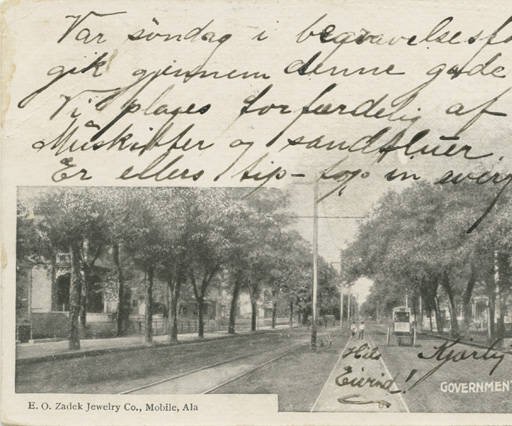 Var söndag i begravelsesfø
gik gjennem denne gade
Vi plages forfærdelig af
Müskitter og sandfluer.
Er ellers tip-top in every
Hils Kjærlig
Eivind!
GOVERNMENT
E. O. Zadek Jewelry Co., Mobile, Ala